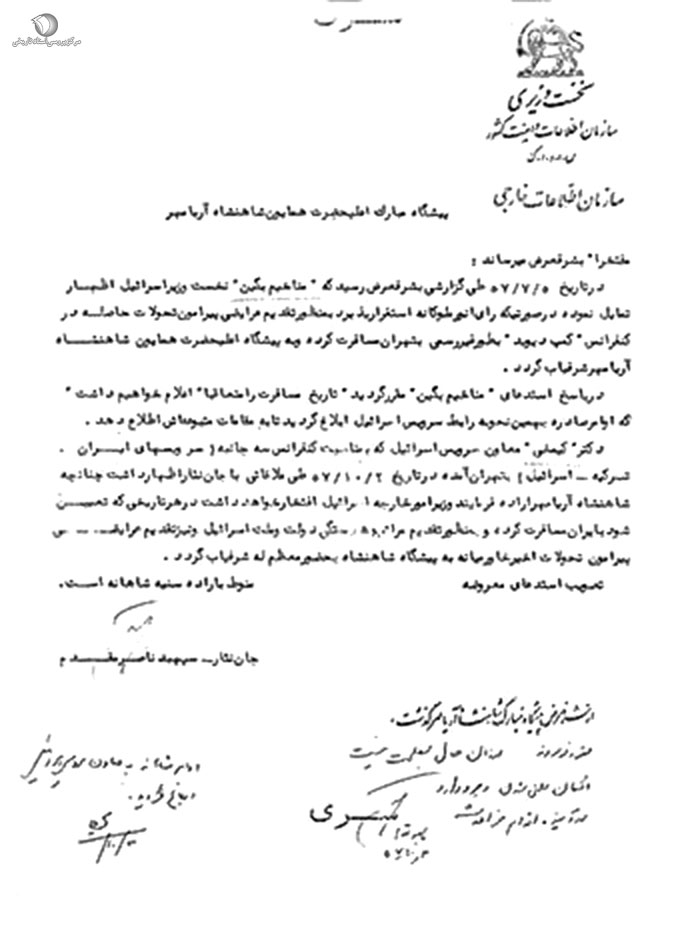 مرکز بررسی اسناد تاریخی
سـری
نخست وزیری
سازمان اطلاعات و امنیت کشور
س.ا.و.ا.ک
سازمان اطلاعات خارجی
پیشگاه مبارک اعلیحضرت همایون شاهنشاه آریامهر
مفتخرا" بشرفعرض میرساند :
در تاریخ ۵۷/۷/۵ طی گزارشی بشرفعرض رسید که " مناخیم بگین" نخست وزیر اسرائیل اظهار
تمایل نموده در صورتیکه رای انور ملوکانه استقرار پذیرد بمنظور تقدیم عرایضی پیرامون تحولات حاصله در
کنفرانس "کمپ دیوید" بطور غیررسمی بتهران مسافرت کرده و به پیشگاه اعلیحضرت همایون شاهنشاه
آریامهر شرفیاب گردد .
در پاسخ استدعای " مناخیم بگین" مقرر گردید " تاریخ مسافرت را متعاقبا" اعلام خواهیم داشت "
که اوامر صادره بهمین نحو به رابط سرویس اسرائیل ابلاغ گردید تا به مقامات متبوعه اش اطلاع دهد .
دکتر " کیمخی" معاون سرویس اسرائیل که بمناسبت کنفرانس سه جانبه ( سرویسهای ایران .
ترکیه ـ اسرائیل ) بتهران آمده در تاریخ ۵۷/۱۰/۲ طی ملاقاتی با جان نثار اظهار داشت چنانچه
شاهنشاه آریامهر اراده فرمایند وزیر امور خارجه اسرائیل افتخار خواهد داشت در هر تاریخی که تعیین
شود بایران مسافرت کرده و بمنظور تقدیم مراتب دولت و ملت اسرائیل و نیز تقدیم عرایضی
پیرامون تحولات اخیر خاورمیانه به پیشگاه شاهنشاه بحضور معظم له شرفیاب گردد .
تصویب استدعای معروضه منوط باراده سنیه شاهانه است.
جان نثار ـ سپهبد ناصر مقدم
از شرفعرض پیشگاه مبارک شاهنشاه آریامهر گذشت.
حال مصلحت نیست
اوامر شاهانه به معاون سرویس اسرائیل
ابلاغ گردید.
سـری